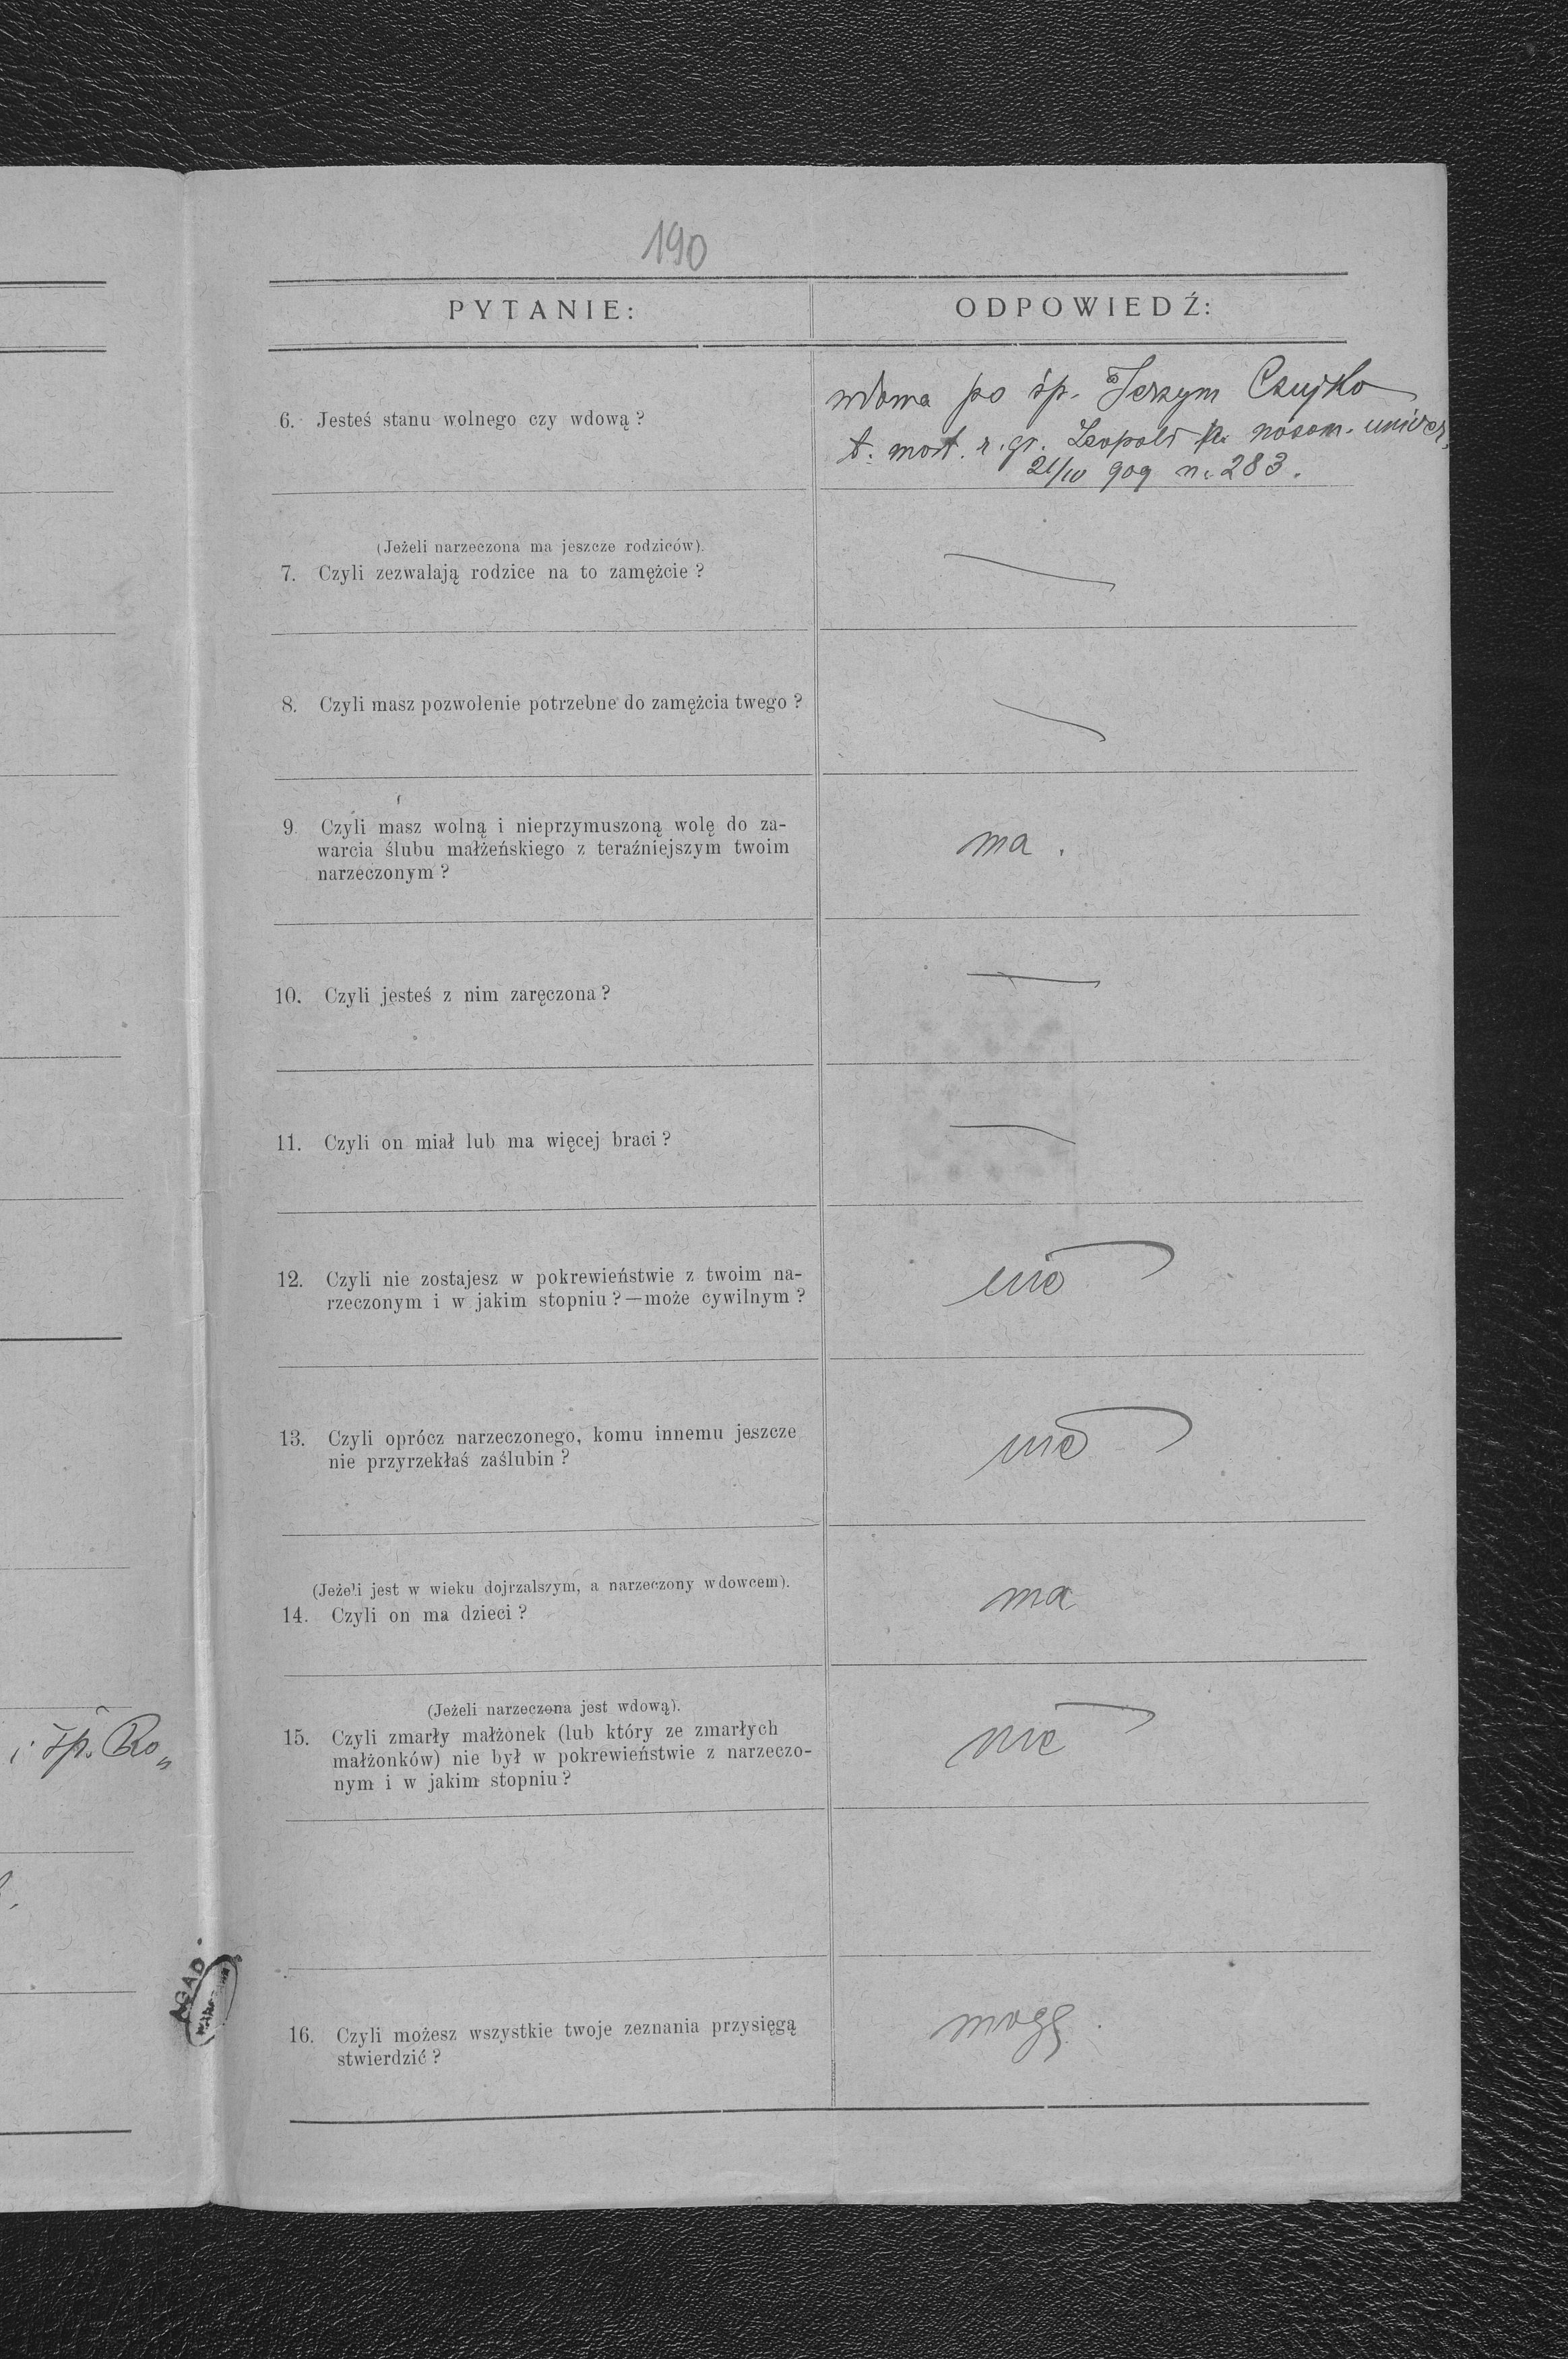 190
PYTANIE:
ODPOWIEDŹ:
6. Jesteś stanu wolnego czy wdową?
wdowa po śp. Jerzym Czujko
t. mort. r. gr. Leopold nosom. univer,
21/IV 909 n. 283.
(Jeżeli narzeczona ma jeszcze rodziców).
7. Czyli zezwalają rodzice na to zamężcie?
8. Czyli masz pozwolenie potrzebne do zamężcia twego?
9. Czyli masz wolną i nieprzymuszoną wolę do za-
warcia ślubu małżeńskiego z teraźniejszym twoim
narzeczonym?
ma.
10. Czyli jesteś z nim zaręczona?
11. Czyli on miał lub ma więcej braci?
12. Czyli nie zostajesz w pokrewieństwie z twoim na-
rzeczonym i w jakim stopniu?—może cywilnym?
nie
13. Czyli oprócz narzeczonego, komu innemu jeszcze
nie przyrzekłaś zaślubin?
nie
(Jeżeli jest w wieku dojrzalszym, a narzeczony wdowcem).
14. Czyli on ma dzieci?
ma
(Jeżeli narzeczona jest wdową).
15. Czyli zmarły małżonek (lub który ze zmarłych
małżonków) nie był w pokrewieństwie z narzeczo-
nym i w jakim stopniu?
nie
i śp. Ro„
AGAD
16. Czyli możesz wszystkie twoje zeznania przysięgą
stwierdzić?
mogę.